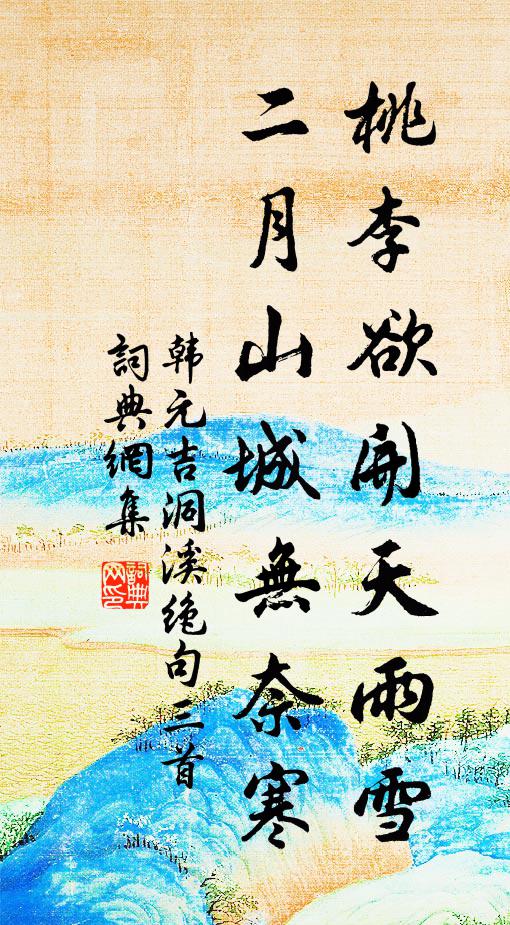 桃李欲開天雨雪
二月山城無奈寒
韩元吉洞溪绝句三首
詞典網集
詞典网印